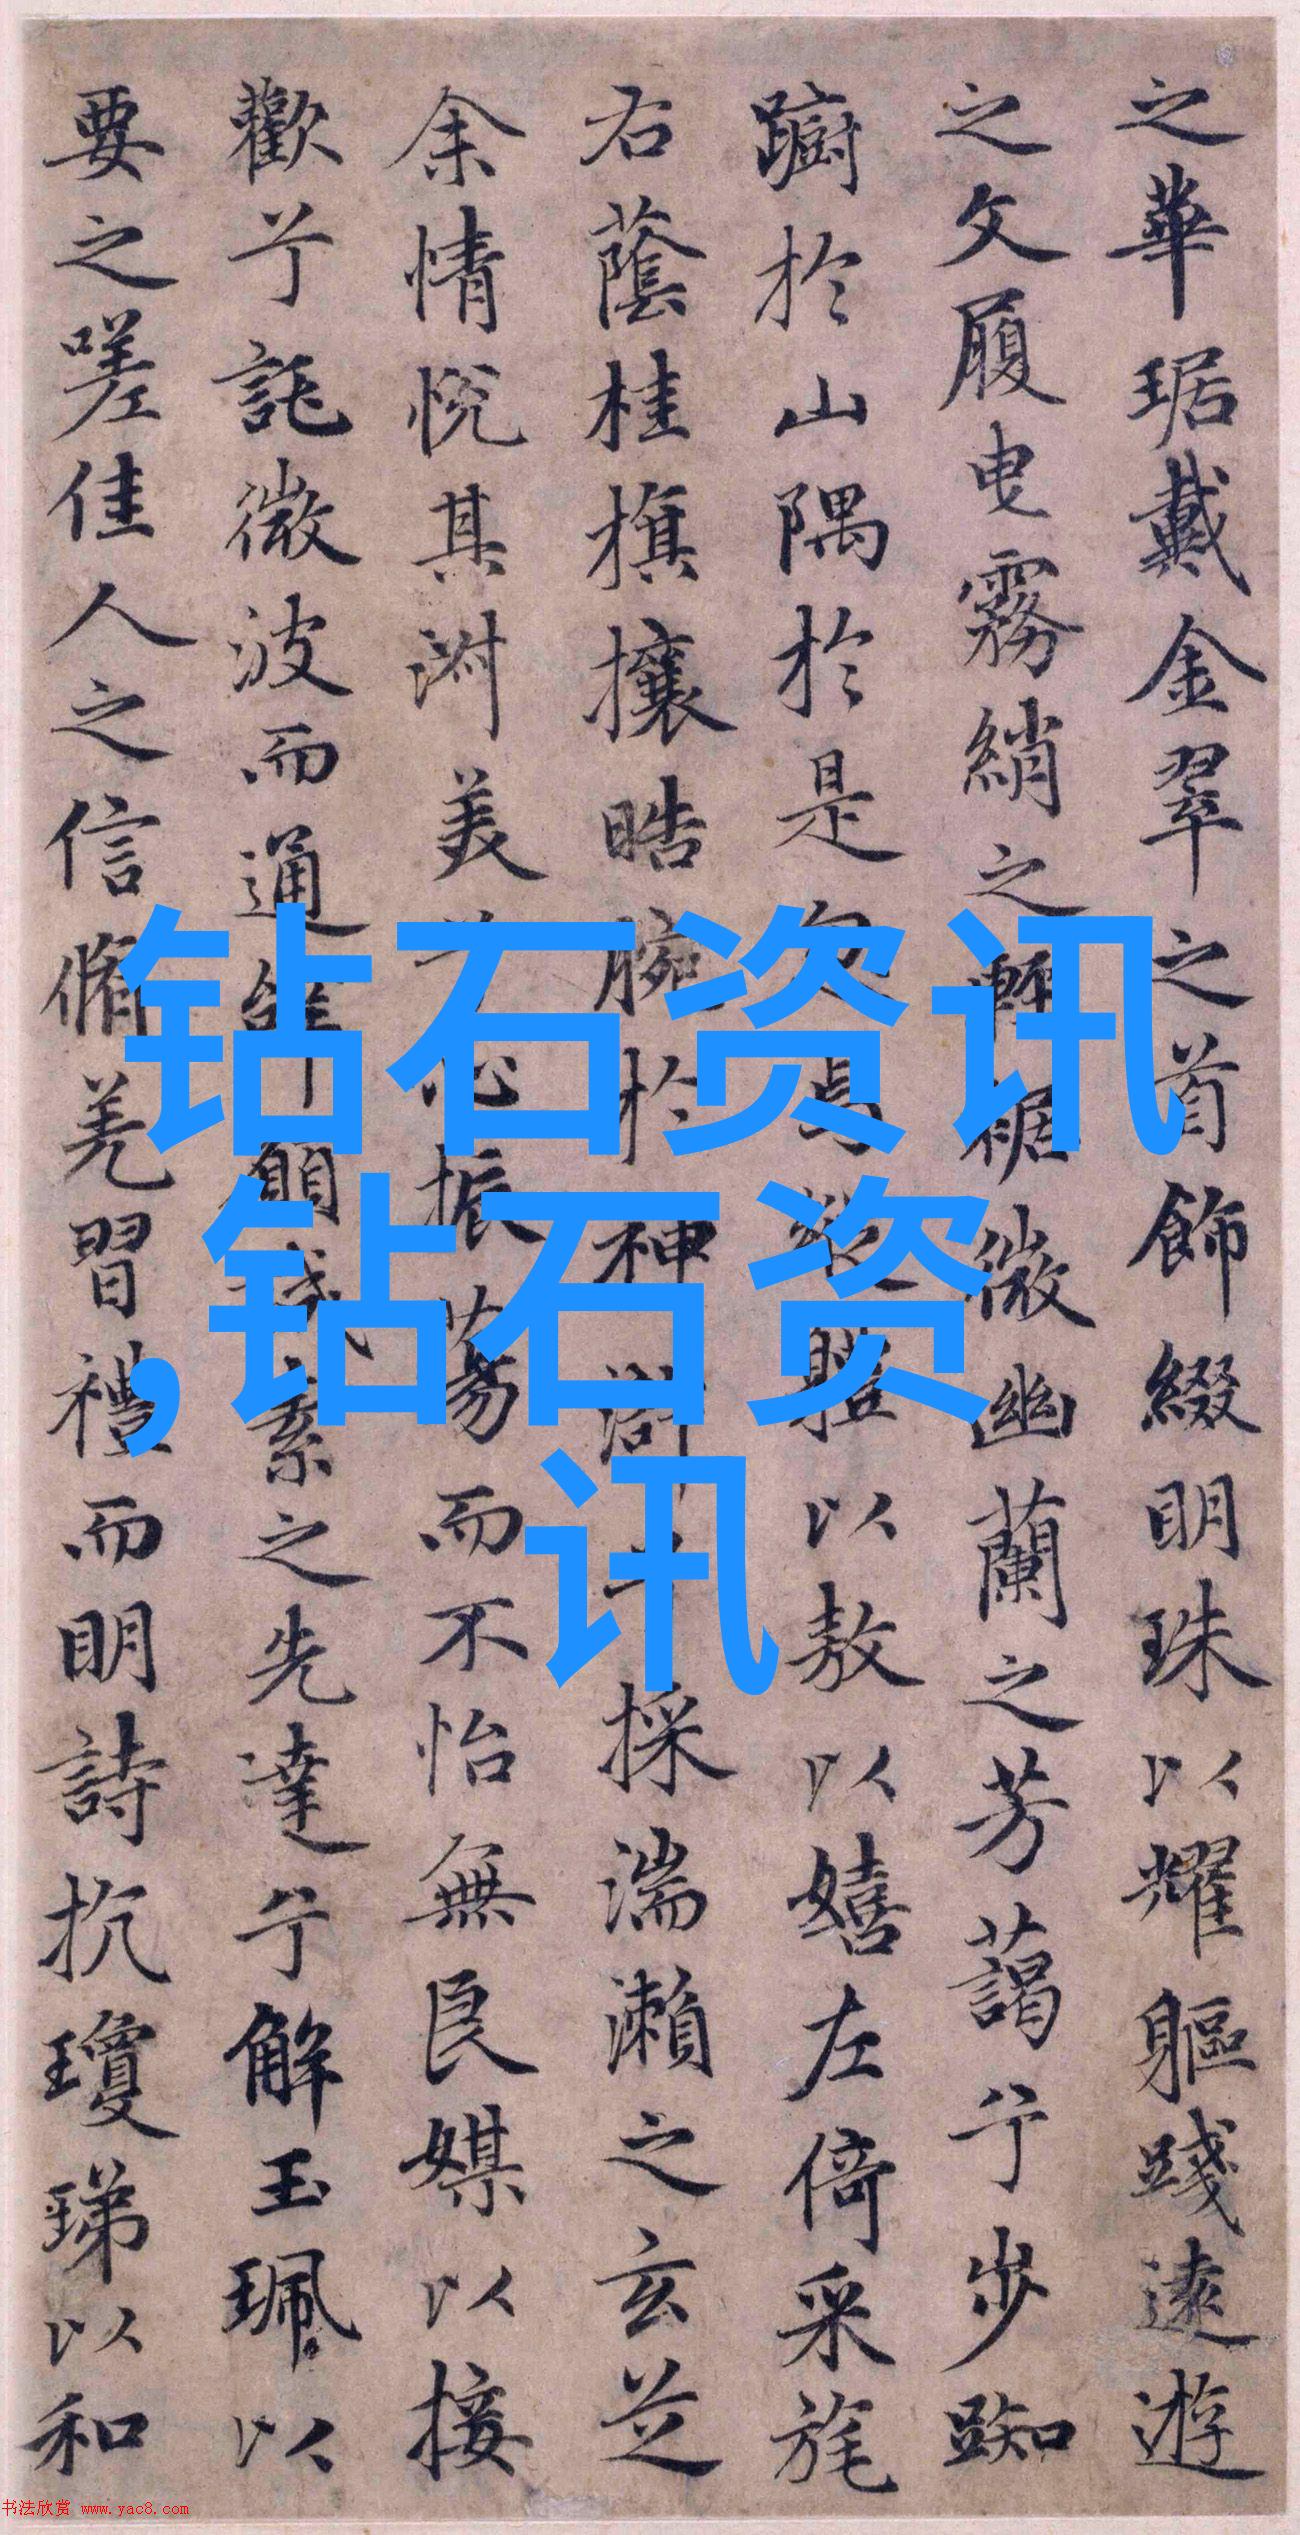 之華琚戴金翠之首飾綴明珠以耀軀踐遠遊
之文履曳霧綃之輕裾微幽蘭之芳藹兮步踟
躕於山隅於是忽焉縱體以敖以嬉左倚采旄
右蔭桂旗攘晧腕於神滸兮採湍瀨之玄芝
余情悅其淑美兮心振蕩而不怡無良媒以接
歡兮託微波而通辭願誠素之先達兮解玉珮以
要之嗟佳人之信脩羌習禮而明詩抗瓊珶以和
钻石资讯
,钻石资
讯
书法欣赏 www.yac8.com